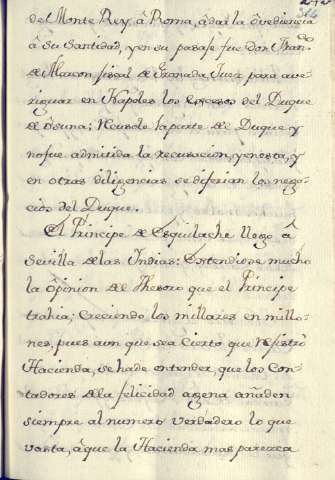 del Monte Rey â Roma, âdar la Ovediencia
â Su Santidad, y en su pasaje fue Don Fran.co
de Alarcon fiscal de Granada Juez para ave-
riguar en Napoles los excesos del Duque
de Osuna; Recusolo la parte del Duque y
no fue admitida la recusacion, yenesta, y
en otras diligencias se diferian los nego-
cios del Duque.
El Principe de Esquilache llego â
Sevilla de las Indias: Estendiose mucho
la Opinion del Thesoro que el Principe
trahia; Creciendo los millares en millo-
nes, pues aun que sea Cierto que registrô
Hacienda, se hade entender, que los Con-
tadores de la felicidad agena añaden
siempre al numero verdadero lo que
vasta, âque la Hacienda mas parezca